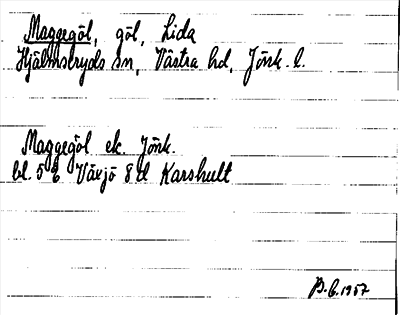 Maggegöl, göl, Lida
Hjälmseryds sn, Västra hd, Jönk. l.
Maggegöl ek. Jönk.
bl. 5 Växjö 8 d Karshult
1957